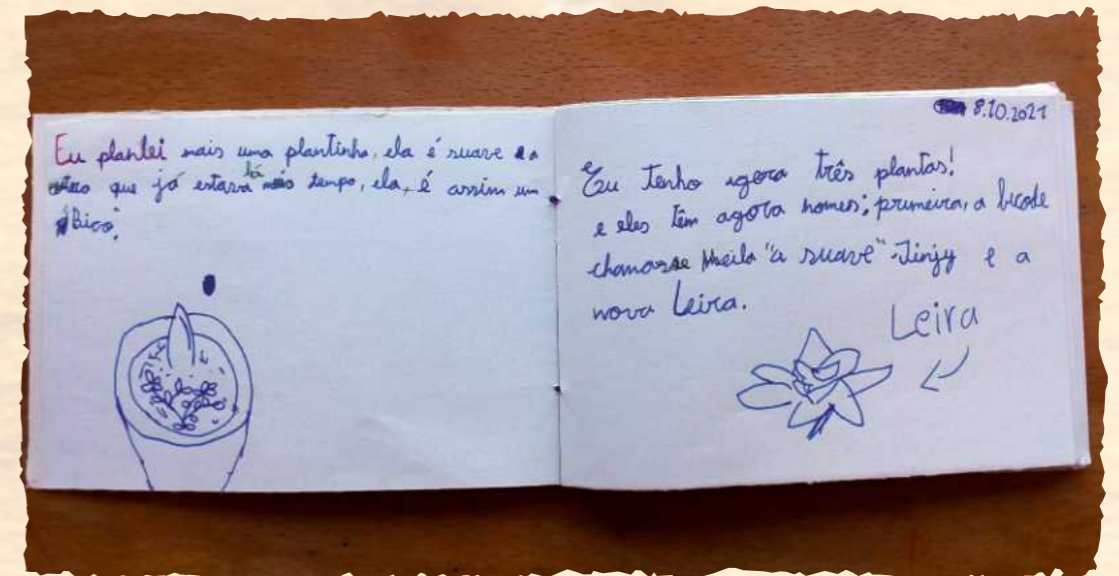 Eu plantei mais uma plantinha, ela é suave e a
outra que já estava há mais tempo, ela, é assim um
"Bico".
8.10.2021
Eu Tenho agora três plantas!
e eles têm agora nomes; primeira, a bicode
chamasse Sheila "a suave" Jinjy e a
nova Leira.
Leira